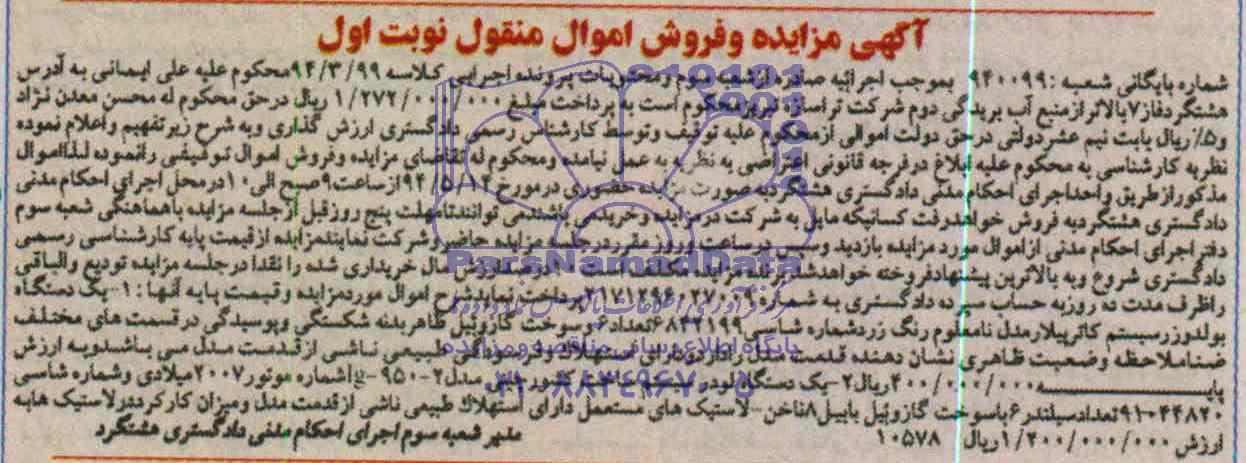 آگهی مزایده وفروش اموال منقول نوبت اول
شماره بایگانی شعبه : ۹۴۰۰۹۹ بموجب اجرائیه صادره از شعبه سوم ومحتویات پرونده اجرایی کلاسه ۹۴/۳/۹۹ محکوم علیه علی ایمانی به آدرس
هشتگردفاز۷بالاتر ازمنبع آب بریدگی دوم شرکت تراسازه تبریز محکوم است به پرداخت مبلغ ۱/۲۷۲/۰۰۰/۰۰۰ ریال درحق محکوم له محسن معدن نژاد
و۵٪ ریال بابت نیم عشردولتی درحق دولت اموالی ازمحکوم علیه توقیف وتوسط کارشناس رسمی دادگستری ارزش گذاری وبه شرح زیرتفهیم واعلام نموده
نظریه کارشناسی به محکوم علیه ابلاغ درفرجه قانونی اعتراضی به نظریه به عمل نیامده ومحکوم له تقاضای مزایده وفروش اموال توقیفی رانموده لذااموال
مذکورازطریق واحداجرای احکام مدنی دادگستری هشتگردبه صورت مزایده حضوری درمورخ ۹۴/۵/ ازساعت۹صبح الی۱۰درمحل اجرای احکام مدنی
دادگستری هشتگردبه فروش خواهدرفت کسانیکه مایل به شرکت درمزایده وخریدمی باشندمی توانندتامهلت پنج روزقبل ازجلسه مزایده باهماهنگی شعبه سوم
دفتراجرای احکام مدنی ازاموال مورد مزایده بازدید وسپس درساعت وروز مقرردرجلسه مزایده حاضروشرکت نمایندمزایده ازقیمت پایه کارشناسی رسمی
دادگستری شروع وبه بالاترین پیشنهادفروخته خواهدشد مال خریداری شده را نقدا درجلسه مزایده تودیع والباقی
راظرف مدت ده روزبه حساب سپرده دادگستری به شماره اموال موردمزایده وقیمت پایه آنها : ۱-یک دستگاه
بولدوزرسیستم کاترپیلارمدل نامعلوم رنگ زردشماره شاسی ۶۸۴۲۱۹۹تعداد وسوخت گازوئیل ظاهربدنه شکستگی وپوسیدگی درقسمت های مختلف
ضمناملاحظه وضعیت ظاهری نشان دهنده قدمت استهلاک وفرسودگی طبیعی ناشی ازقدمت مدل می باشدوبه ارزش
پایه ۴۰۰/۰۰۰/۰۰۰ریال۲-یک دستگاه لودر سیستم مدل۲-۹۵۰ شماره موتور۲۰۰۷میلادی وشماره شاسی
۹۱۰۴۴۸۲۰تعدادسیلندر۶باسوخت گازوئیل بابیل۸ناخن-لاستیک های مستعمل دارای استهلاک طبیعی ناشی ازقدمت مدل ومیزان کارکردولاستیک هابه
ارزش ۱/۲۰۰/۰۰۰/۰۰۰ریال ۱۰۵۷۸ مدیر شعبه سوم اجرای احکام مدنی دادگستری هشتگرد
ParsNamadData
پایگاه اطلاع رسانی مناقصه و مزایده
۰۲۱-۸۸۳۴۹۶۷۰-۵